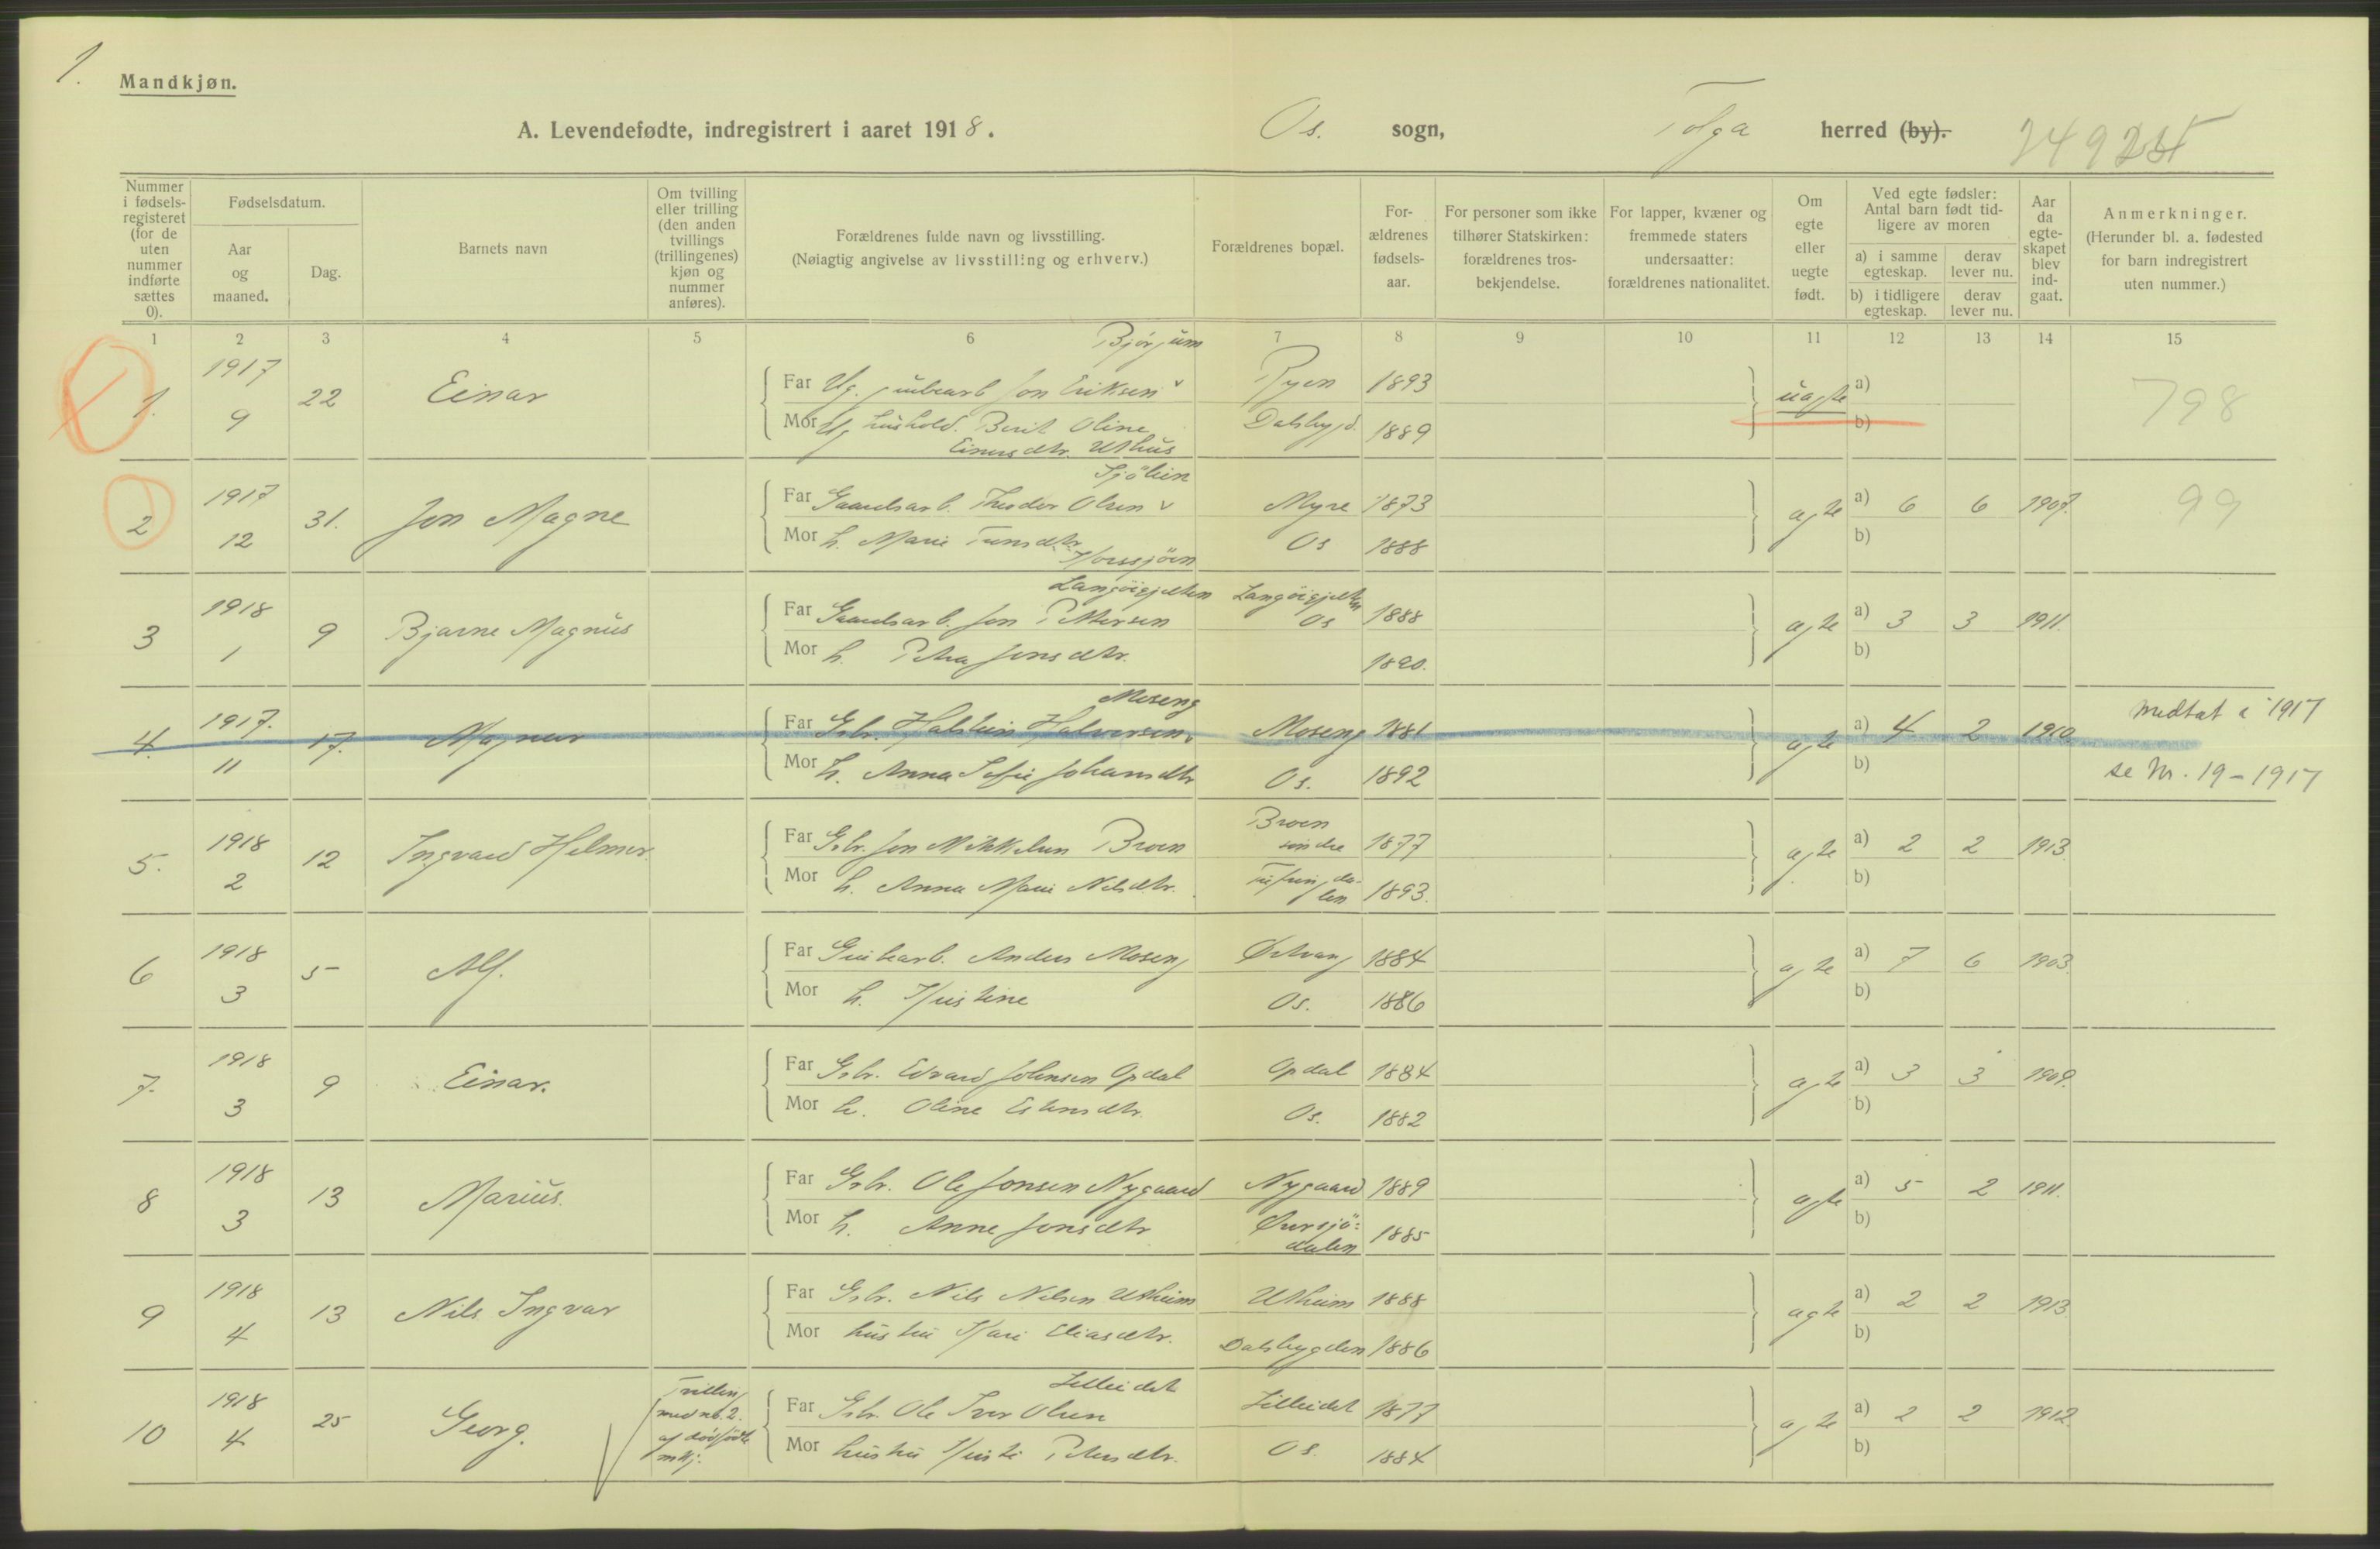 1.
Mandkjøn.
A. Levendefødte, indregistrert i aaret 1918.
Os. sogn,
Tolga herred (by).
Nummer i fødsels-registeret (for de uten nummer indførte sættes 0).
Fødselsdatum.
Aar og maaned.
Dag.
Barnets navn
Om tvilling eller trilling (den anden tvillings (trillingenes) kjøn og nummer anføres).
Forældrenes fulde navn og livsstilling.
(Nøiagtig angivelse av livsstilling og erhverv.)
Forældrenes bopæl.
For-ældrenes fødsels-aar.
For personer som ikke tilhører Statskirken: forældrenes tros-bekjendelse.
For lapper, kvæner og fremmede staters undersaatter: forældrenes nationalitet.
Om egte eller uegte født.
Ved egte fødsler: Antal barn født tid-ligere av moren
a) i samme egteskap.
derav lever nu.
b) i tidligere egteskap.
derav lever nu.
Aar da egte-skapet blev ind-gaat.
Anmerkninger.
(Herunder bl. a. fødested for barn indregistrert uten nummer.)
1 2 3 4 5 6 7 8 9 10 11 12 13 14 15
1. 1917 9 22 Einar
Far Ug. Jon Eriksen Ryen 1893
Mor Ug. hushold. Berit Oline Dalsbygd. 1889
Einarsdtr. Uthus
uagte a) b) 798
2 1917 12 31. Jon Magne
Far Gaardsarb. Theodor Olsen Myre 1873
Mor h. Marie Os 1888
agte a) 6 6 1907. b) 99
3 1918 1 9 Bjarne Magnus
Langøigjelten Langøigjelten
Far Gaardsarb. Jon Pettersen Os 1888
Mor h. Petra Jonsdtr. 1890.
agte a) 3 3 1911. b)
4. 1917. 11 17. Magnar
Moseng
Far Grbr. Halstein Halvorsen Moseng 1881
Mor h. Anna Sofie Johansdtr Os. 1892
agte a) 4 2 1910. b)
medtat i 1917
se Nr. 19 - 1917
5. 1918 2 12 Ingvard Helmer.
Far Grbr. Jon Mikkelsen Broen Broen søndre 1877
Mor h. Anna Marie Nilsdtr. Tufsingdalen 1893.
agte a) 2 2 1913 b)
6 1918 3 5 Alf.
Far Grubearb. Anders Moseng Østvang 1884
Mor h. Kristine Os. 1886
agte a) 7 6 1903. b)
7. 1918 3 9 Einar.
Far Grbr. Edvard Johnsen Opdal Opdal 1884
Mor h. Oline Estensdtr. Os. 1882
agte a) 3 3 1909. b)
8 1918 3 13 Marius.
Far Grbr. Ole Jonsen Nygaard Nygaard 1889
Mor h. Anne Jonsdtr Øversjø: dalen 1885
agte a) 5 2 1911. b)
9 1918 4 13 Nils Ingvar
Far Grbr. Nils Nilsen Utheim Utheim 1888
Mor hustru Kari Eliasdtr. Dalsbygden 1886
agte a) 2 2 1913 b)
10 1918 4 25 Georg.
Tvilling med nr. 2. af dødfødte mkj.
Lilleidet
Far Grbr. Ole Iver Olsen Lilleidet 1877
Mor hustru Kristi Petersdtr. Os. 1884
agte a) 2 2 1912. b)